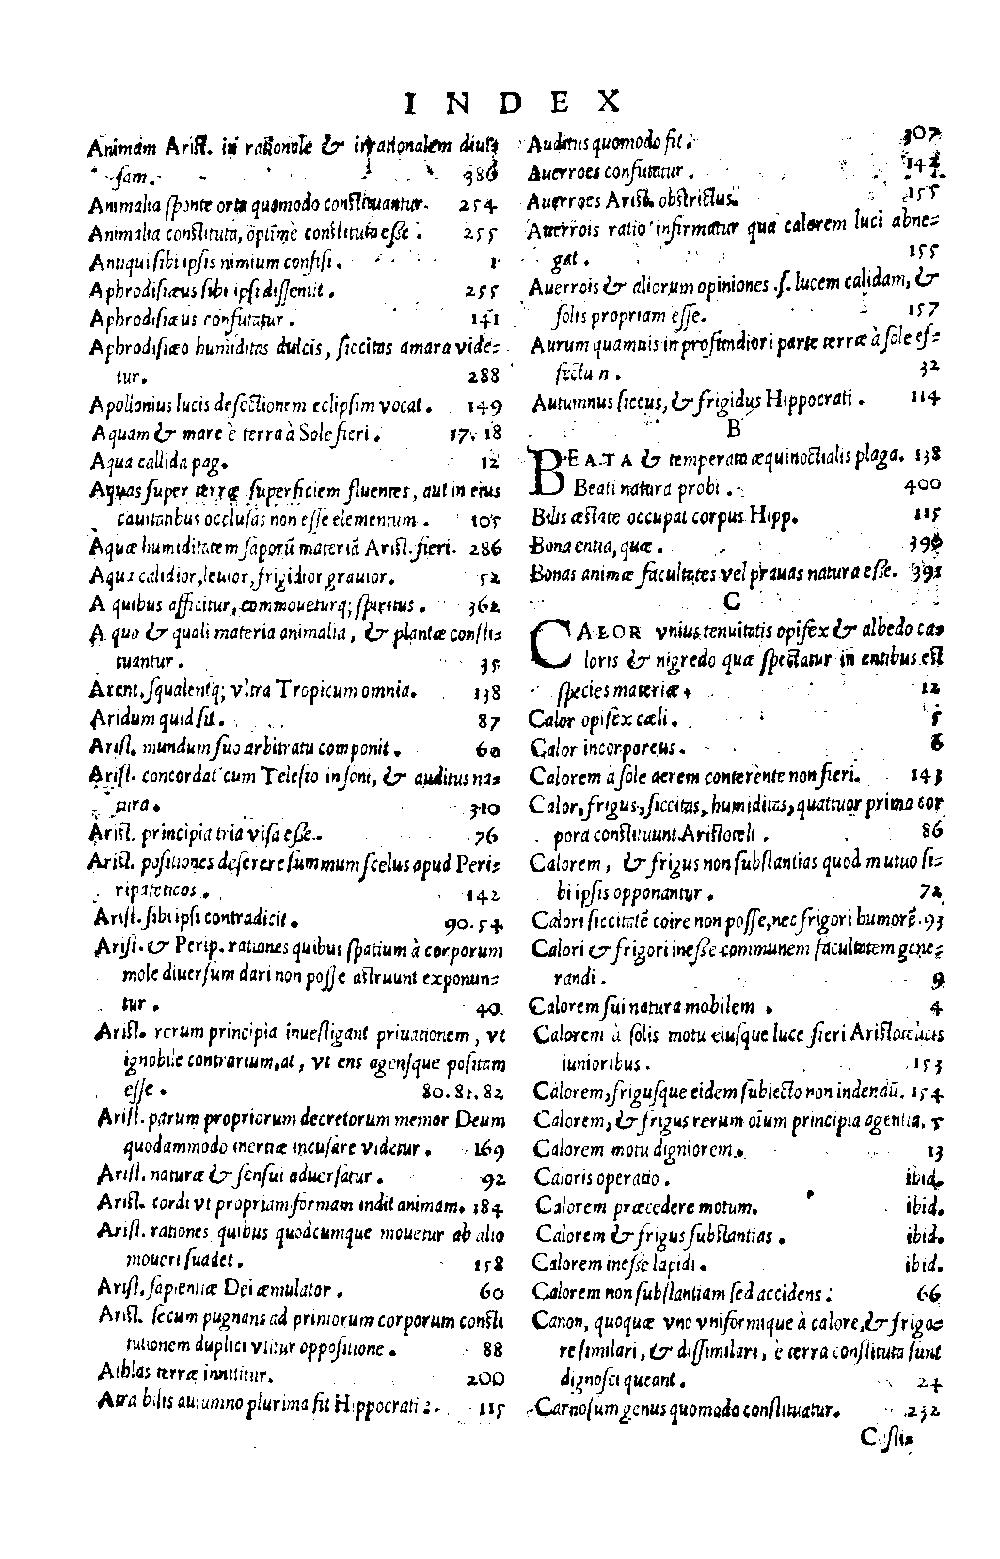 INDEX
Animam Arist. in rationale & irrationalem diui-
sam. 386
Animalia sponte orta quomodo constituantur. 254
Animalia constituta, optime constituta esse. 255
Antiqui sibi ipsis nimium confisi. 1
Aphrodisæus sibi ipsi dissentit. 255
Aphrodisæus confutatur. 141
Aphrodisiæo humiditas dulcis, siccitas amara vide-
tur. 288
Apollonius lucis defectionem eclipsim vocat. 149
Aquam & mare è terra à Sole fieri. 17. 18
Aqua callida pag. 12
Aquas super terræ superficiem fluentes, aut in eius
cauitatibus occlusas non esse elementum. 105
Aquæ humiditatem saporũ materiã Arist. fieri. 286
Aqua calidior, leuior, frigidior grauior. 52
A quibus afficitur, commoueturq; spiritus. 362
A quo & quali materia animalia, & plantæ consti-
tuantur. 35
Arent, squalentq; vltra Tropicum omnia. 138
Aridum quid sit. 87
Arist. mundum suo arbitratu componit. 60
Arist. concordat cum Telesio in soni, & auditus na-
tura. 310
Arist. principia tria visa esse. 76
Arist. positiones deserere summum scelus apud Peri-
ripateticos. 142
Arist. sibi ipsi contradicit. 90. 54
Arist. & Perip. rationes quibus spatium à corporum
mole diuersum dari non posse astruunt exponun-
tur. 40
Arist. rerum principia inuestigant priuationem, vt
ignobile contrarium, at, vt ens agensque positam
esse. 80. 81. 82
Arist. parum propriorum decretorum memor Deum
quodammodo inertiæ incusare videtur. 169
Arist. naturæ & sensui aduersatur. 92
Arist. cordi vt propriam formam indit animam. 184
Arist. rationes quibus quodcumque mouetur ab alio
moueri suadet. 158
Arist. sapientiæ Dei æmulator. 60
Arist. secum pugnans ad primorum corporum consti
tutionem duplici vtitur oppositione. 88
Athlas terræ innititur. 200
Atra bilis autumno plurima fit Hippocrati. 115
Auditus quomodo fit. 307
Auerroes confutatur. 142
Auerroes Arist. obstrictus. 155
Auerrois ratio infirmatur qua calorem luci abne-
gat. 155
Auerrois & aliorum opiniones .s. lucem calidam, &
solis propriam esse. 157
Aurum quamuis in profundiori parte terræ à sole ef-
fectum. 32
Autumnus siccus, & frigidus Hippocrati. 114
B
BEATA & temperata æquinoctialis plaga. 138
Beati natura probi. 400
Bilis æstate occupat corpus Hipp. 115
Bona entia, quæ. 396
Bonas animæ facultates vel prauas natura esse. 391
C
CALOR vnius tenuitatis opifex & albedo ca-
loris & nigredo quæ spectatur in entibus est
species materiæ. 12
Calor opifex cæli. 5
Calor incorporeus. 6
Calorem à sole aerem conterente non fieri. 143
Calor, frigus, siccitas, humiditas, quattuor prima cor
pora constituunt Aristoteli. 86
Calorem, & frigus non substantias quod mutuo si-
bi ipsis opponantur. 72
Calori siccitatẽ coire non posse, nec frigori humorẽ. 93
Calori & frigori inesse communem facultatem gene-
randi. 9
Calorem sui natura mobilem. 4
Calorem à solis motu eiusque luce fieri Aristotelicis
iunioribus. 153
Calorem, frigusque eidem subiecto non indendũ. 154
Calorem, & frigus rerum oĩum principia agentia. 5
Calorem motu digniorem. 13
Caloris operatio. ibid.
Calorem præcedere motum. ibid.
Calorem & frigus substantias. ibid.
Calorem inesse lapidi. ibid.
Calorem non substantiam sed accidens. 66
Canon, quoquæ vno vniformique à calore, & frigo-
re similari, & dissimilari, è terra constituta sunt
dignosci queant. 24
Carnosum genus quomodo constituatur. 232
C stis